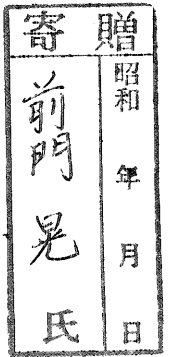 寄贈
昭和 年 月 日
前門 晃 氏